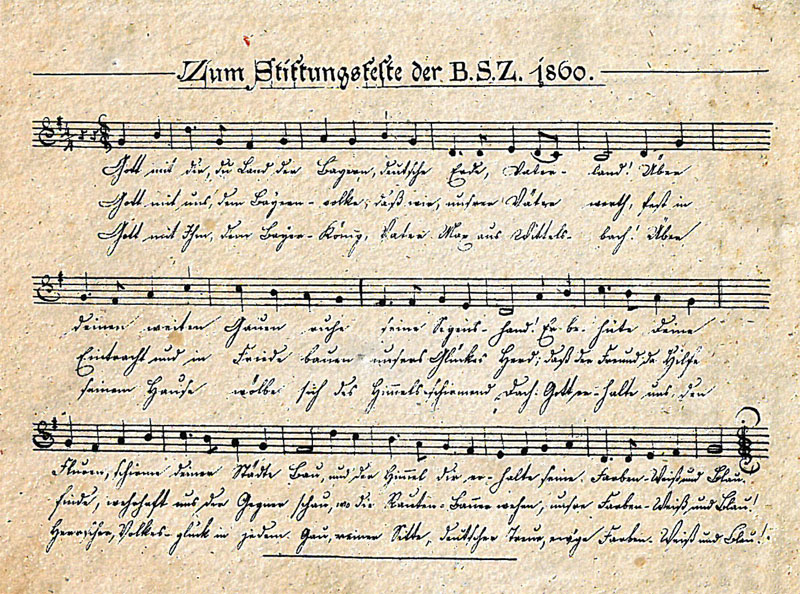 Zum Stiftungsfeste der B.S.Z. 1860.
Gott mit dir, du Land der Bayern, deutsche Erde, Vater- land! Über
Gott mit uns, dem Bayern- volke, daß wir, unsrer Väter werth, fest in
Gott mit Ihm, dem Bayer- König, Vater Max aus Wittels- bach! Über
deinen weiten Gauen ruhe seine Segens- hand! Er be- hüte deine
Eintracht und in Friede bauen unsres Glückes Herd; daß der Freund da Hilfe
seinem Hause wölbe sich des Himmels schirmend Dach! Gott er- halte uns, den
Fluren, schirme deiner Städte Bau, und der Himmel dir er- halte seine Farben Weiß und Blau.
finde, wehrhaft uns der Gegner schau, wo die Rauten- Banner wehen, unsre Farben- Weiß und Blau!
Herrscher, Volkes- glück in jedem Gau, reiner Sitte, deutscher Treue, ew'ge Farben- Weiß und Blau!